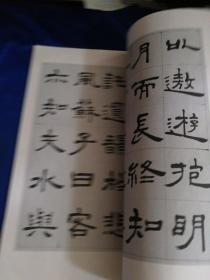 以遨遊抱明
月而長終知
託遺響於悲
風蘇子曰客
亦知夫水與